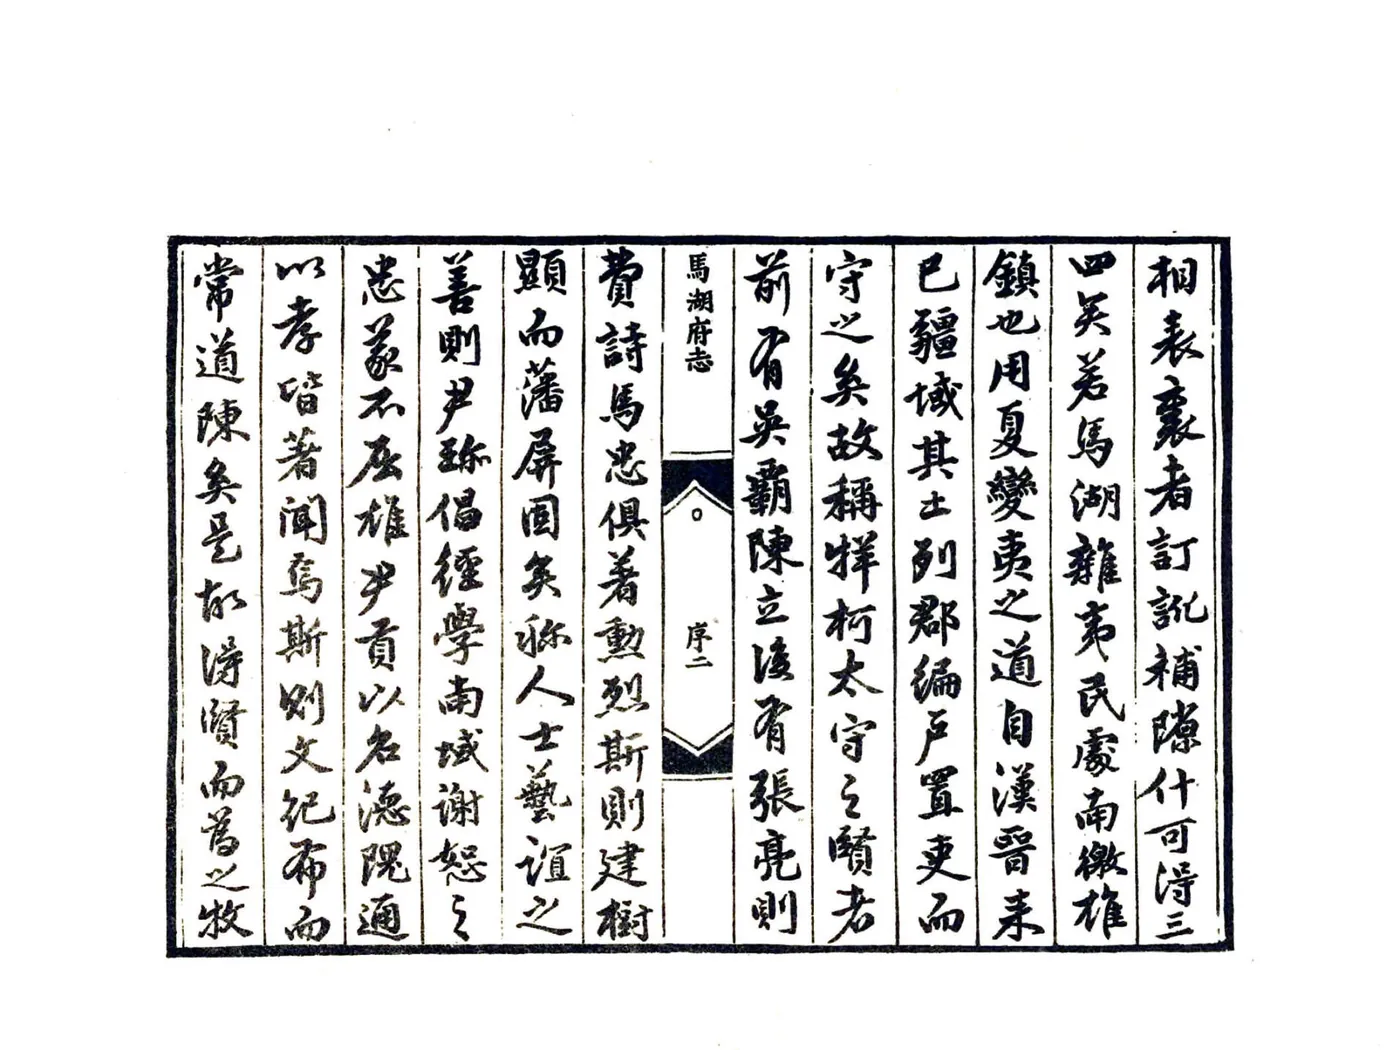 相表裏者訂訛補隙什可得三
四矣若馬湖雜夷民處南徼雄
鎮也用夏變夷之道自漢晉来
已疆域其土列郡編户置吏而
守之矣故稱牂柯太守之賢者
前有吴霸陳立後有張亮則
馬湖府志
序二
費詩馬忠俱著勲烈斯則建樹
顯而藩屏固矣称人士藝誼之
善則尹珎倡經學南域谢恕之
忠義不屈雄尹貢以名德隗通
以孝皆著闻焉斯则文化布而
常道陳矣是故得賢而爲之牧